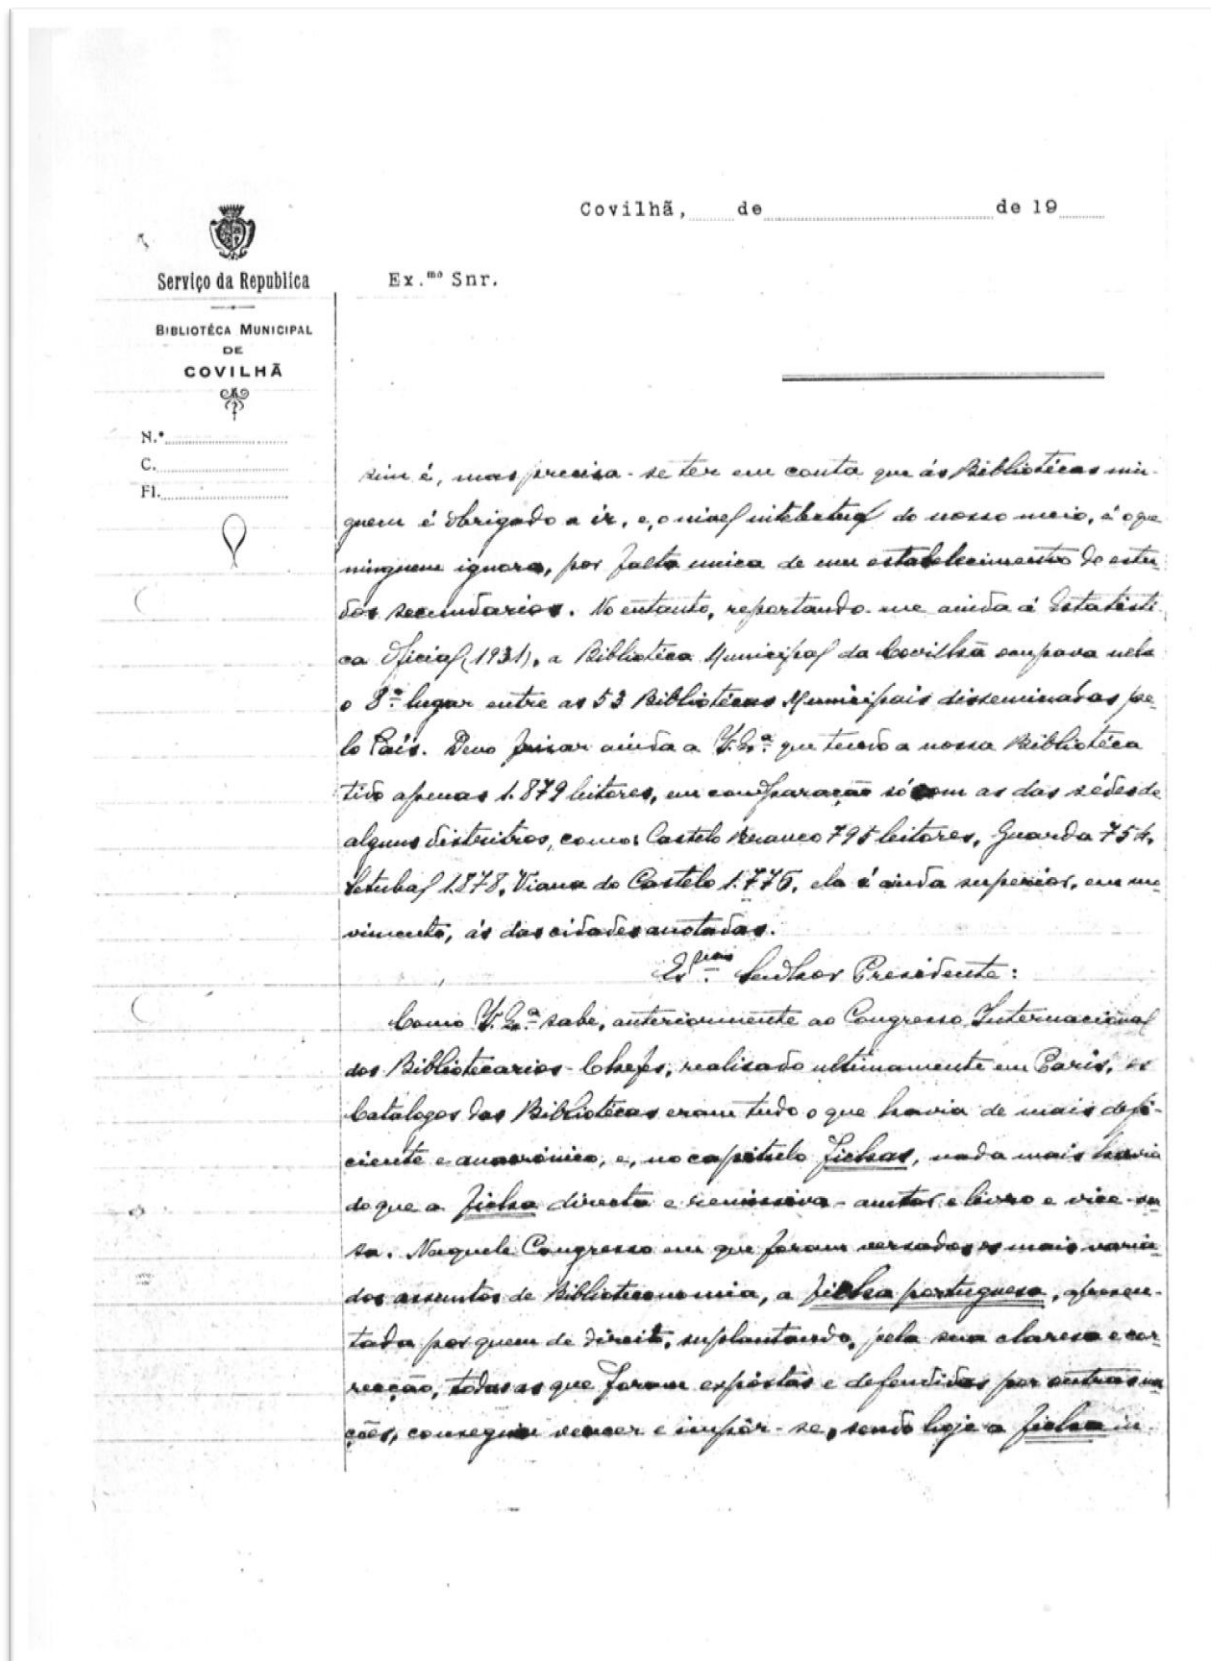 Covilhã, de de 19
Serviço da Republica
Ex.mo Snr.
BIBLIOTÉCA MUNICIPAL
DE
COVILHÃ
N.º
C.
Fl.
sim é, mas precisa-se ter em conta que ás Bibliotécas nin-
guem é obrigado a ir, e, o nivel intelectual do nosso meio, é o que
ninguem ignora, por falta unica de um estabelecimento de estu-
dos secundarios. No entanto, reportando-me ainda á Estatisti-
ca Oficial (1931), a Bibliotéca Municipal da Covilhã ocupava nela
o 8.º lugar entre as 53 Bibliotécas Municipais disseminadas pe-
lo País. Devo frisar ainda a V. Ex.ª que tendo a nossa Bibliotéca
tido apenas 1.879 leitores, em comparação só com as das sédes de
alguns distritros, como: Castelo Branco 795 leitores, Guarda 754,
Setubal 1878, Viana do Castelo 1.775, ela é ainda superior, em mo-
vimento, ás das cidades anotadas.
Ex.mo Senhor Presidente:
Como V. Ex.ª sabe, anteriormente ao Congresso Internacional
dos Bibliotecarios-Chefes, realisado ultimamente em Paris, os
Catalogos das Bibliotécas eram tudo o que havia de mais defi-
ciente e anacrónico, e, no capitulo fichas, nada mais havia
do que a ficha directa e remissiva - autor e livro e vice-ver-
sa. Naquele Congresso em que foram versados os mais varia-
dos assuntos de Biblioteconomia, a ficha portuguesa, apresen-
tada por quem de direito, suplantando, pela sua claresa e cor-
recção, todas as que foram expóstas e defendidas por outras na-
ções, conseguiu vencer e impôr-se, sendo hoje a ficha in-